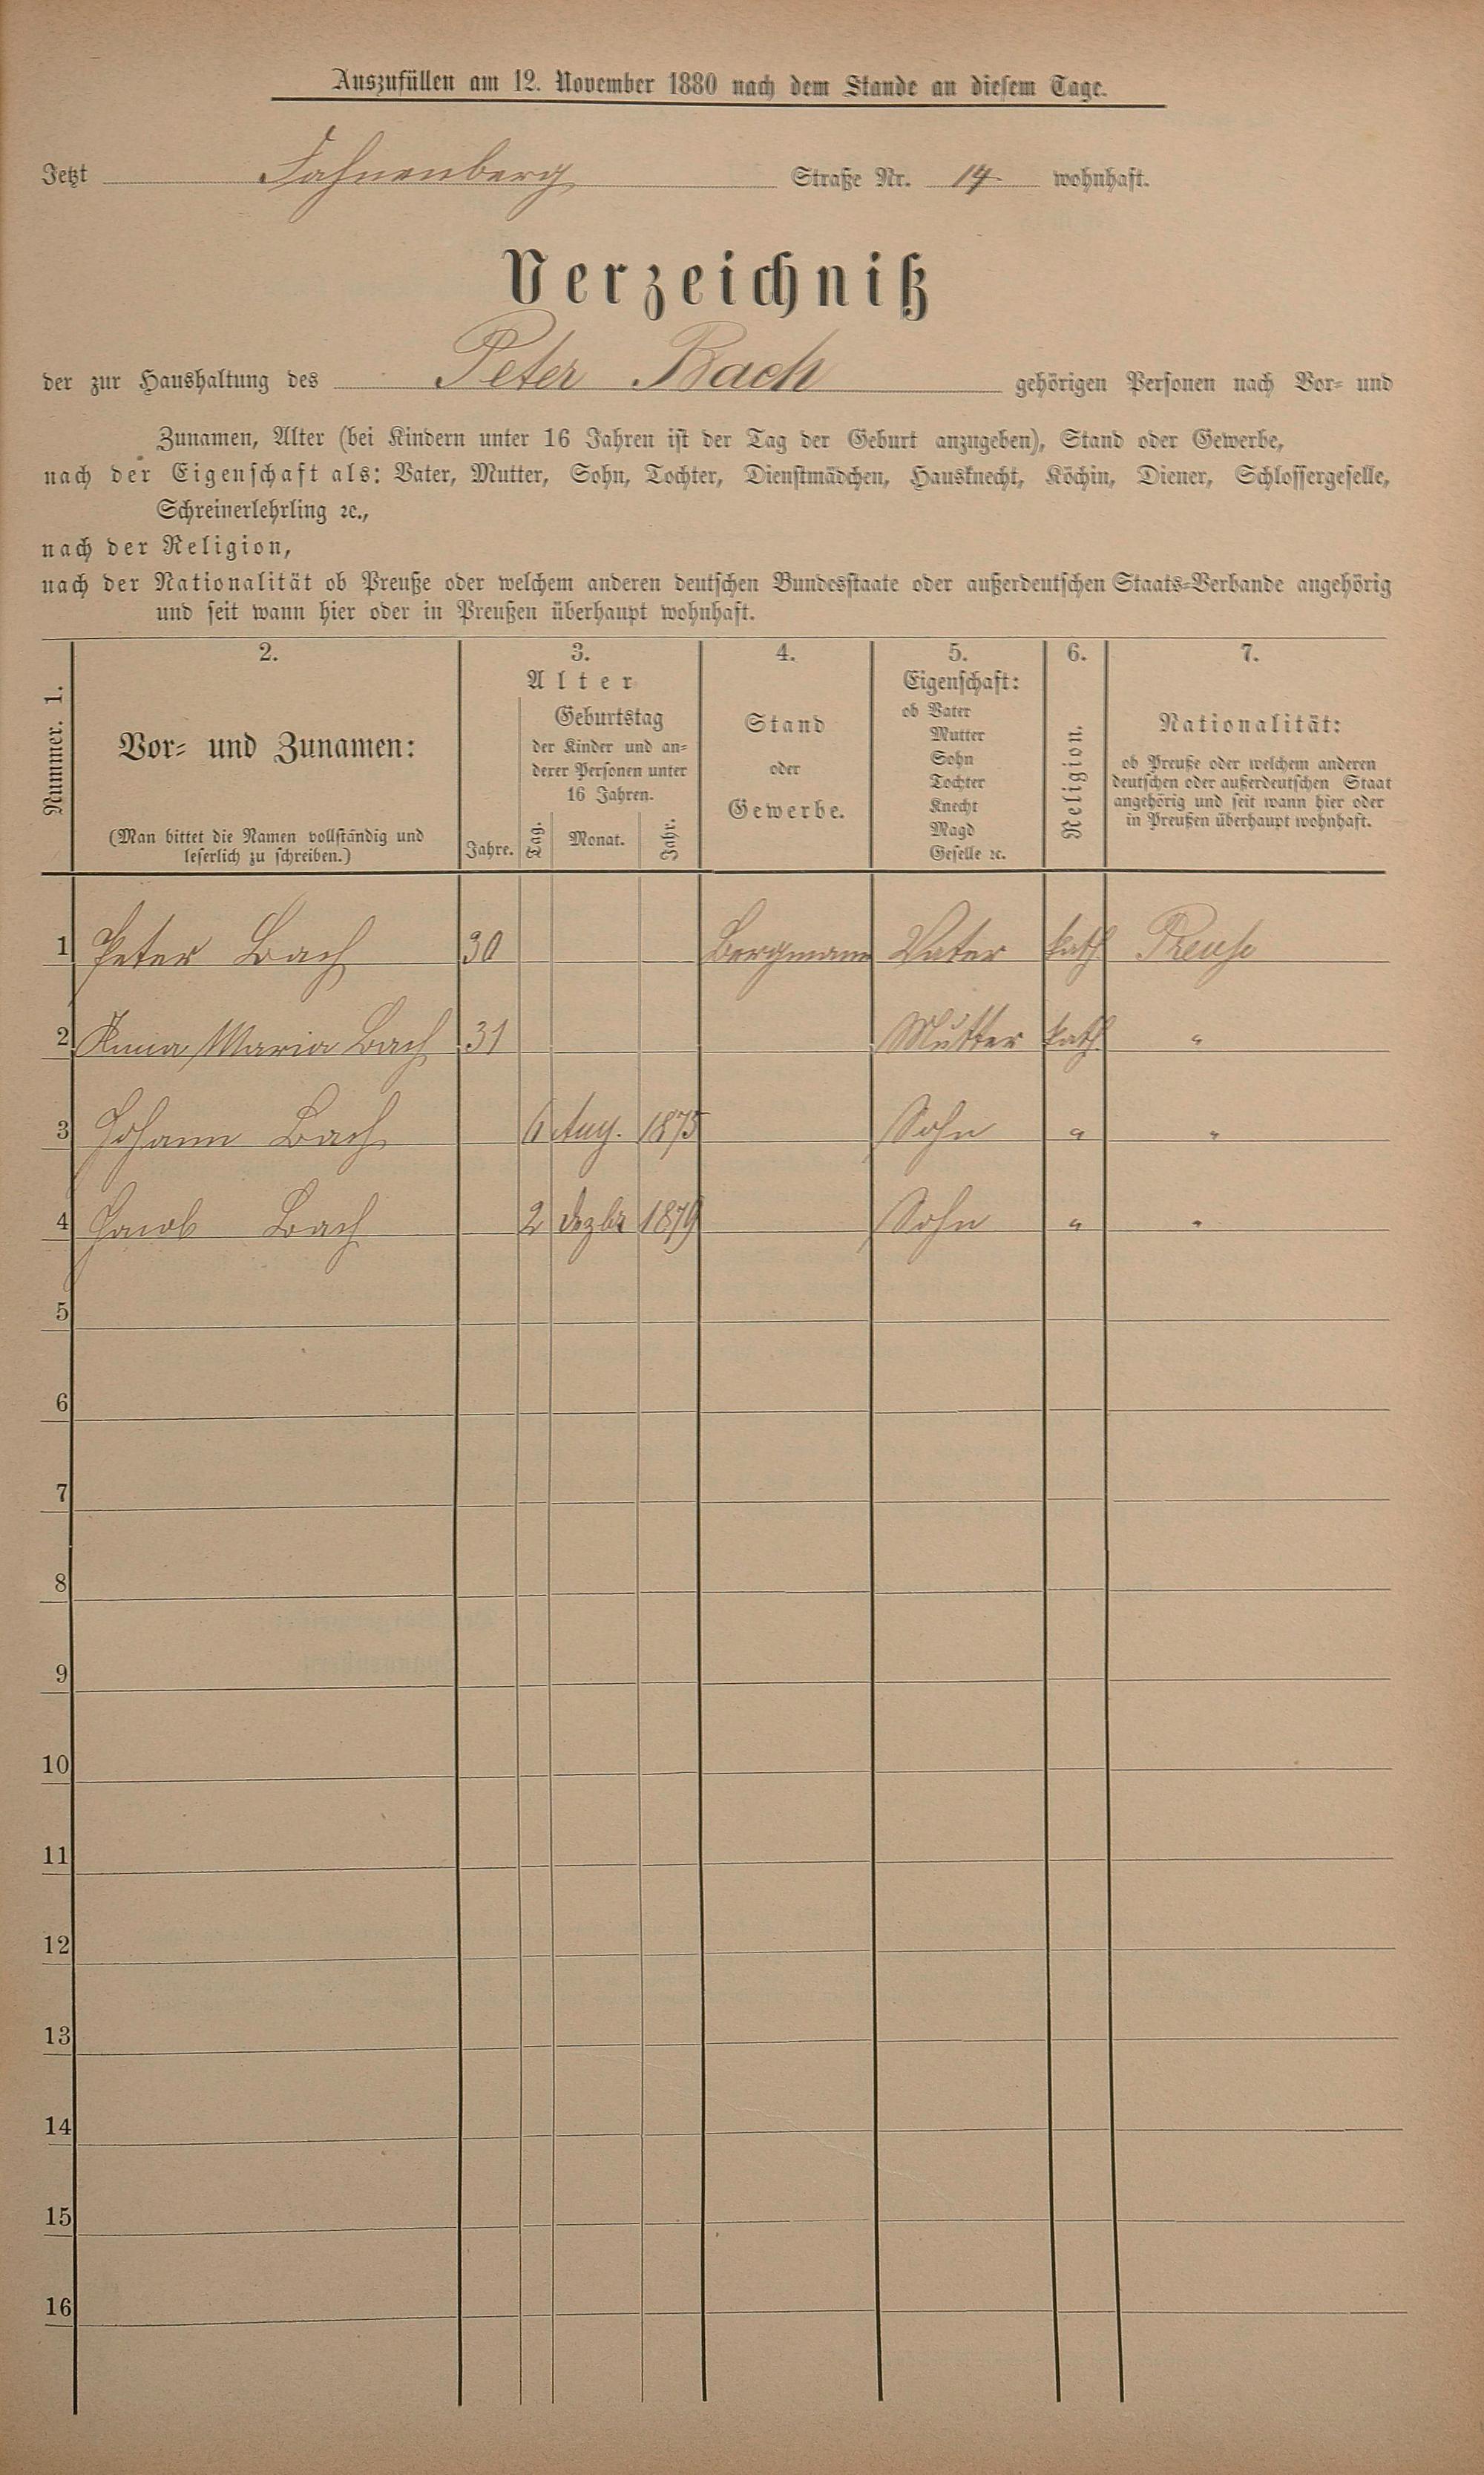 Auszufüllen am 12. November 1880 nach dem Stande an diesem Tage.
Jetzt Fahnenberg Straße Nr. 14 wohnhaft.
Verzeichniß
der zur Haushaltung des Peter Bach gehörigen Personen nach Vor- und
Zunamen, Alter (bei Kindern unter 16 Jahren ist der Tag der Geburt anzugeben), Stand oder Gewerbe,
nach der Eigenschaft als: Vater, Mutter, Sohn, Tochter, Dienstmädchen, Hausknecht, Köchin, Diener, Schlossergeselle,
Schreinerlehrling ꝛc.,
nach der Religion,
nach der Nationalität ob Preuße oder welchem anderen deutschen Bundesstaate oder außerdeutschen Staats-Verbande angehörig
und seit wann hier oder in Preußen überhaupt wohnhaft.
Nummer. 1.
2.
Vor- und Zunamen:
(Man bittet die Namen vollständig und
leserlich zu schreiben.)
3.
Alter
Jahre.
Geburtstag
der Kinder und an-
derer Personen unter
16 Jahren.
Tag. Monat. Jahr.
4.
Stand
oder
Gewerbe.
5.
Eigenschaft:
ob Vater
Mutter
Sohn
Tochter
Knecht
Magd
Geselle ꝛc.
6.
Religion.
7.
Nationalität:
ob Preuße oder welchem anderen
deutschen oder außerdeutschen Staat
angehörig und seit wann hier oder
in Preußen überhaupt wohnhaft.
1 Peter Bach 30 Bergmann Vater kath. Preuße
2 Anna Maria Bach 31 Mutter kath. "
3 Johann Bach 6 Aug. 1875 Sohn " "
4 Jacob Bach 2 Dezbr 1879 Sohn " "
5
6
7
8
9
10
11
12
13
14
15
16